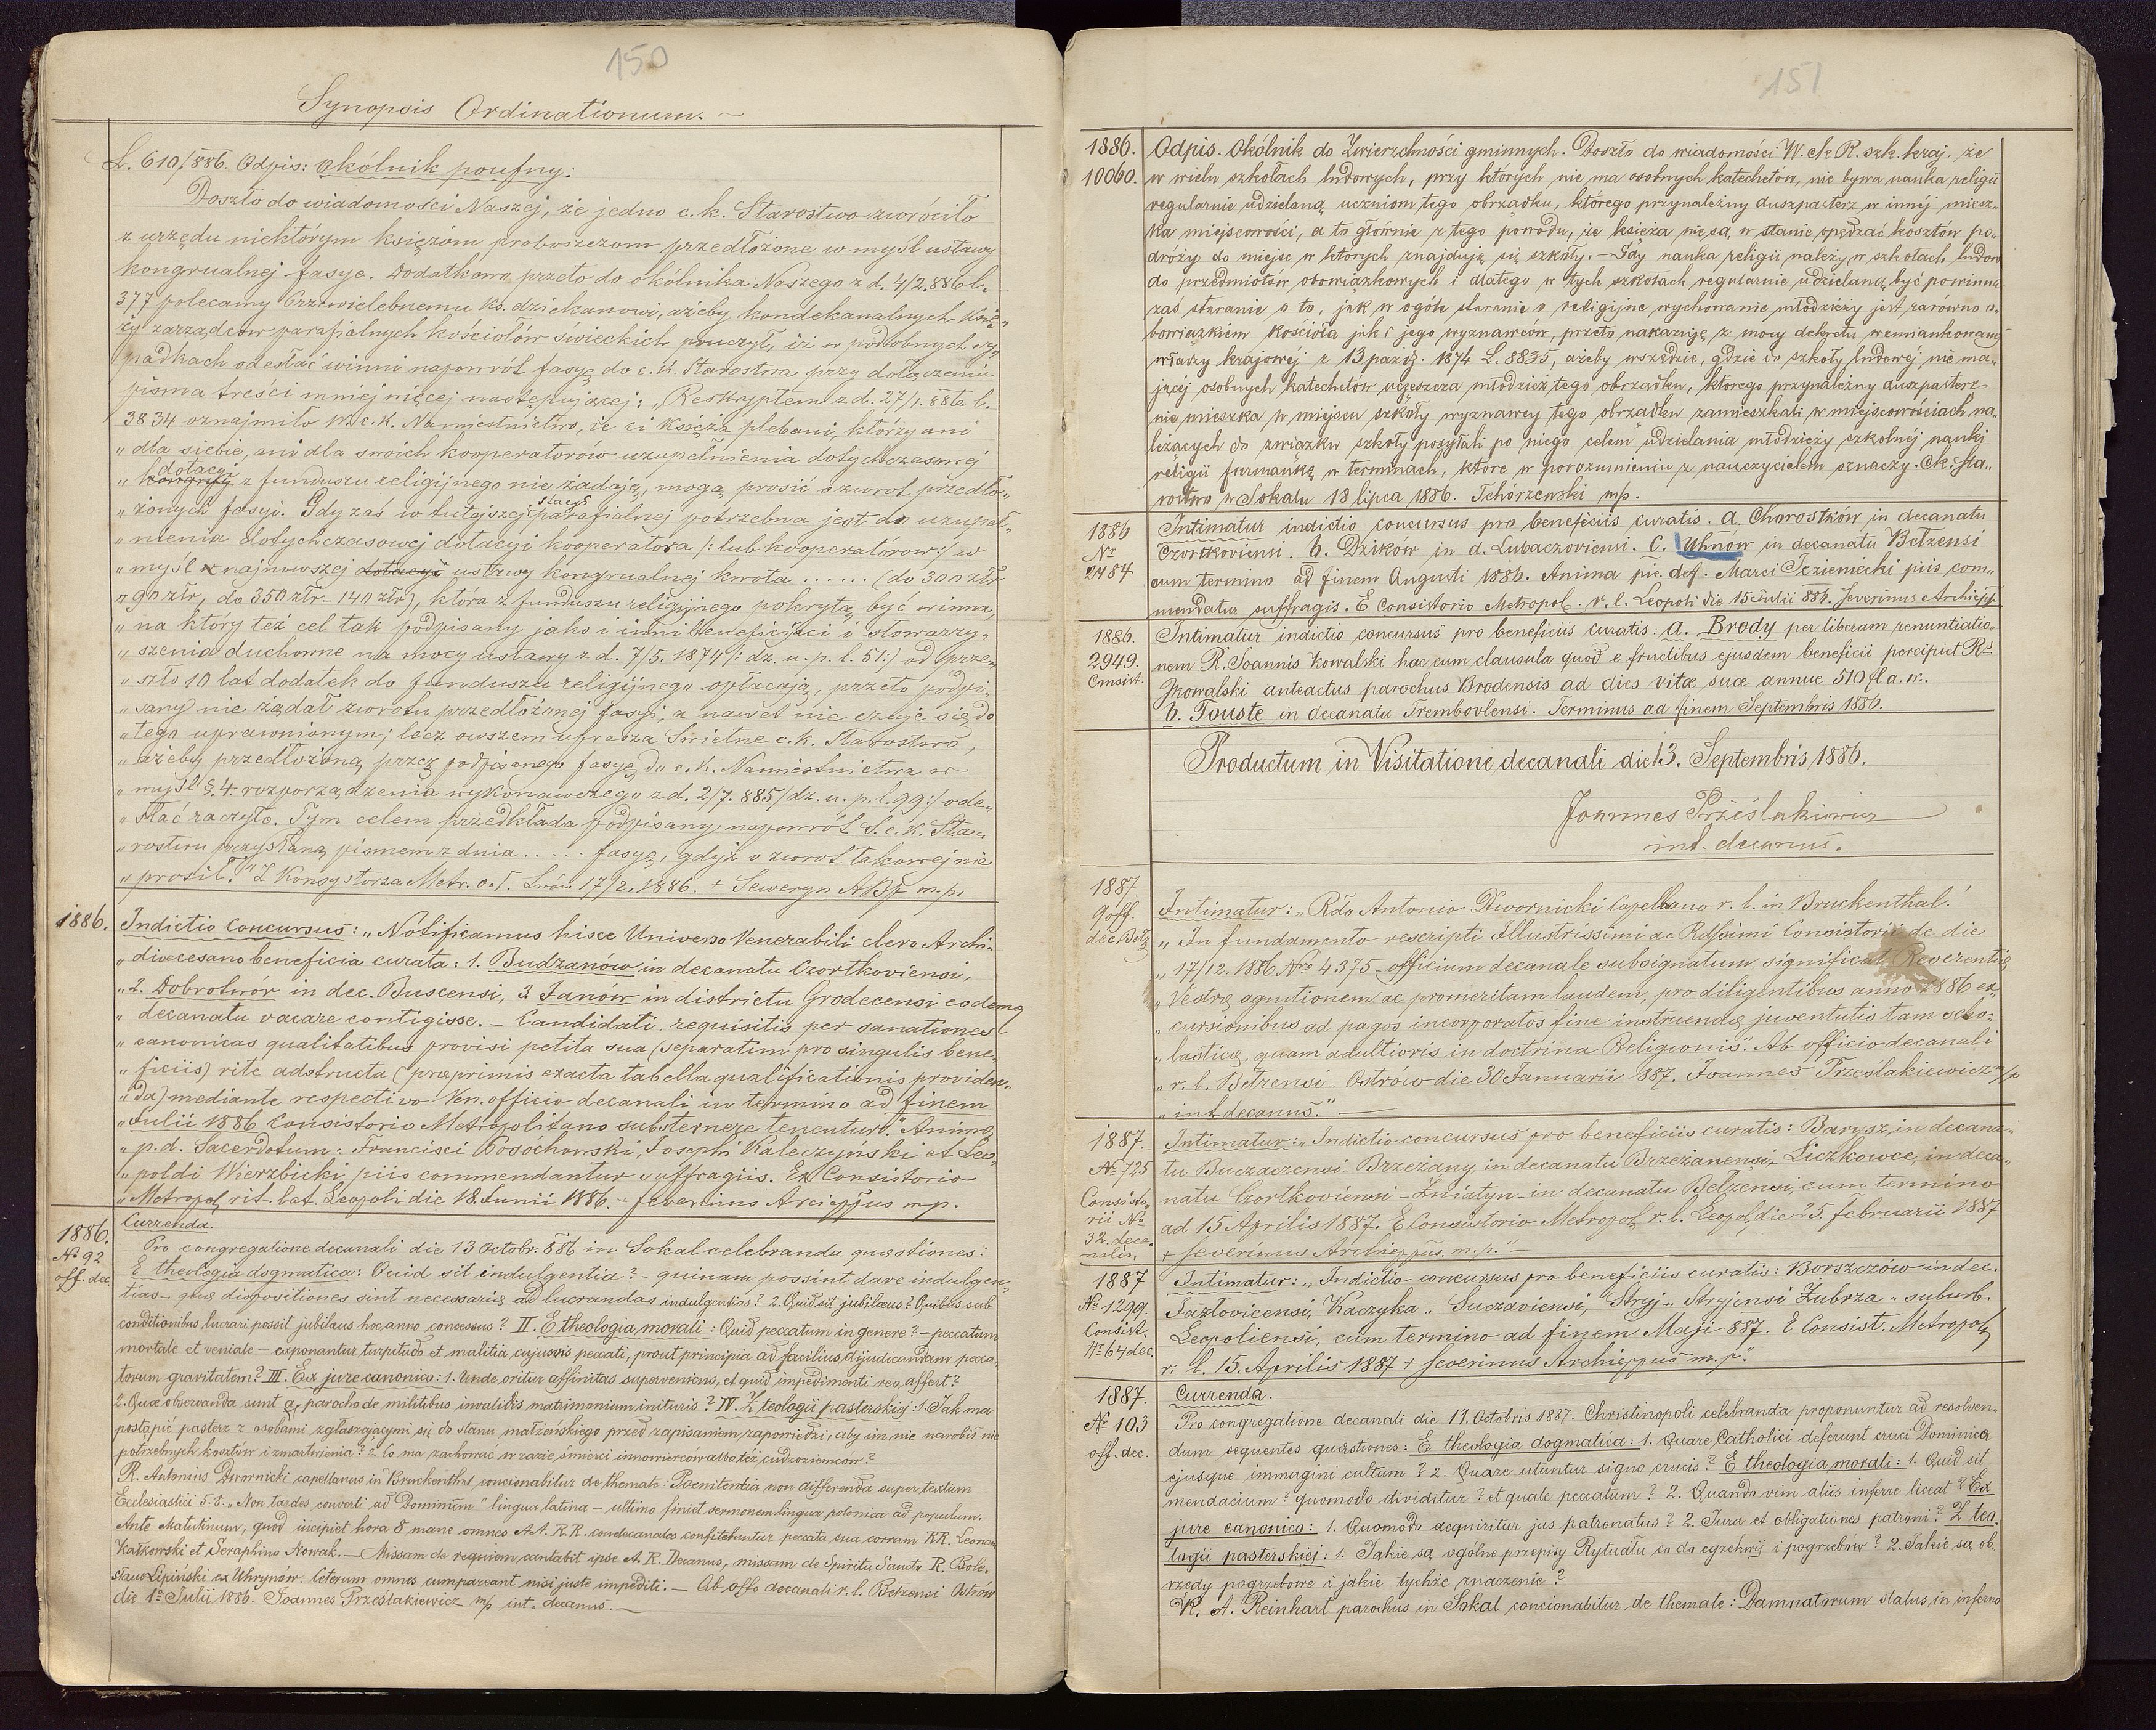 150
Synopsis Ordinationum.
L. 610/886. Odpis: okólnik poufny:
Doszło do wiadomości Naszej, że jedno c. k. Starostwo zwróciło
z urzędu niektórym księżom proboszczom przedłożone w myśl ustawy
kongrualnej fasye. Dodatkowo przeto do okólnika Naszego z d. 4/2. 886 l.
377 polecamy Przewielebnemu Ks. dziekanowi, ażeby kondekanalnych Księ„
ży zarządców parafialnych kościołów świeckich pouczył, iż w podobnych wy„
padkach odesłać winni napowrót fasyę do c. k. Starostwa przy dołączeniu
pisma treści mniej więcej następującej: „Reskryptem z d. 27/1. 886. l.
3834 oznajmiło W. c. k. Namiestnictwo, że ci Księża plebani, którzy ani
„ dla siebie, ani dla swoich kooperatorów uzupełnienia dotychczasowej
dotacyi
„ kongruy z funduszu religijnego nie żądają, mogą prosić o zwrot przedło„
„ żonych fasyi. Gdy zaś w tutejszej stacyi parafialnej potrzebna jest do uzupeł„
„ nienia dotychczasowej dotacyi kooperatora /: lub kooperatórow:/ w
„ myśl najnowszej dotacyi ustawy kongrualnej kwota ...... (do 300 złr
„ 90 złr, do 350 złr – 140 złr), która z funduszu religijnego pokrytą być winna,
„ na który też cel tak podpisany jako i inni beneficyaci i stowarzy„
„ szenia duchowne na mocy ustawy z d. 7/5. 1874 /: dz. u. p. l. 51:/ od prze„
„ szło 10 lat dodatek do funduszu religijnego opłacają, przeto podpi„
„ sany nie żądał zwrotu przedłożonej fasyi, a nawet nie czuje się do
„ tego uprawnionym; lecz owszem uprasza Świetne c. k. Starostwo,
„ ażeby przedłożoną przez podpisanego fasyę do c. k. Namiestnictwa w
„ myśl §. 4. rozporządzenia wykonawczego z d. 2/7. 885 /dz. u. p. l. 99:/ ode„
„ słać raczyło. Tym celem przedkłada podpisany napowrót Ś. c. k. Sta„
„ rostwu przysłaną pismem z dnia ..... fasyę, gdyż o zwrot takowej nie
„ prosił." Z Konsystorza Metr. o. ł. Lwów 17/2. 1886. + Seweryn ABp m. p.
1886. Indictio Concursus: „Notificamus hisce Universo Venerabili clero Archi„
„ dioecesano beneficia curata: 1. Budzanów in decanatu Czortkoviensi,
„ 2. Dobrotwór in dec. Buscensi, 3. Janów in districtu Grodecensi eodemq
„ decanatu vacare contigisse. – Candidati requisitis per sanationes
„ canonicas qualitatibus provisi petita sua (separatim pro singulis bene„
„ ficiis) rite adstructa (præprimis exacta tabella qualificationis providen„
„ da) mediante respectivo Ven. officio decanali in termino ad finem
„ Julii 1886 Consistorio Metropolitano substernere tenentur. Animæ
„ p. d. Sacerdotum: Francisci Kosóchowski, Josephi Kaleczyński et Leo„
„ poldi Wierzbicki piis commendantur suffragiis. Ex Consistorio
„ Metropol. rit. lat. Leopoli die 18 Junii 1886. Severinus Archieppus mp.
1886. Currenda.
Nº 92 Pro congregatione decanali die 13 Octobr. 886 in Sokal celebranda quæstiones:
off. dec. E theologia dogmatica: Quid sit indulgentia? – quinam possint dare indulgen„
tias – quæ dispositiones sint necessariæ ad lucrandas indulgentias? 2. Quid sit jubilæus? Quibus sub
conditionibus lucrari possit jubilæus hoc anno concessus? II. E theologia morali: Quid peccatum in genere? – peccatum
mortale et veniale – exponantur turpitudo et malitia cujusvis peccati, prout principia ad facilius dijudicandam pecca„
torum gravitatem? III. Ex jure canonico: 1. Unde oritur affinitas superveniens, et quid impedimenti reo affert?
2. Quæ observanda sunt a parocho de militibus invalidis matrimonium inituris? IV. Z teologii pasterskiej: 1. Jak ma
postąpić pasterz z osobami zgłaszającymi się do stanu małżeńskiego przed zapisaniem zapowiedzi, aby im nie narobić nie
potrzebnych kosztów i zmartwienia? 2. Co ma zachować w razie śmierci innowierców albo też cudzoziemców?
R. Antonius Dwornicki capellanus in Bruckenthal concionabitur de themate: Poenitentia non differenda super textum
Ecclesiastici 5. 8. „Non tardes converti ad Dominum" lingua latina – ultimo finiet sermonem lingua polonica ad populum.
Ante Matutinum, quod incipiet hora 8 mane omnes AA. R. R. condecanales confitebuntur peccata sua corram RR. Leonem
Kałkowski et Seraphino Nowak. – Missam de requiem cantabit ipse A. R. Decanus, missam de Spiritu Sancto R. Bole„
slaus Lipiński ex Uhrynów. Ceterum omnes compareant nisi juste impediti. – Ab offo decanali r. l. Bełzensi Ostrów
die 1º Julii 1886. Joannes Prześlakiewicz m/p int. decanus. –
151
1886. Odpis. Okólnik do Zwierzchności gminnych. Doszło do wiadomości W. ck R. szk. kraj. że
10060. w wielu szkołach ludowych, przy których nie ma osobnych katechetów, nie bywa nauka religii
regularnie udzielaną uczniom tego obrządku, którego przynależny duszpasterz w innéj miesz„
ka miejscowości, a to głównie z tego powodu, że księża nie są w stanie opędzać kosztów po„
dróży do miejsc w których znajdują się szkoły. – Gdy nauka religii należy w szkołach ludow
do przedmiotów obowiązkowych i dlatego w tych szkołach regularnie udzielaną być powinna
zaś staranie o to, jak w ogóle staranie o religijne wychowanie młodzieży jest zarówno o„
bowiązkiem Kościoła jak i jego wyznawców, przeto nakazuję z mocy dekretu wzmiankowanej
władzy krajowéj z 13 pazdz. 1874 L. 8835, ażeby wszędzie, gdzie do szkoły ludowej nie ma„
jącej osobnych katechetów uczęszcza młodzież tego obrządku, którego przynależny duszpasterz
nie mieszka w miejscu szkoły wyznawcy tego obrządku zamieszkali w miejscowościach na„
leżących do związku szkoły posyłali po niego celem udzielania młodzieży szkolnéj nauki
religii furmankę w terminach, które w porozumieniu z nauczycielem oznaczy. Ck. Sta„
rostwo w Sokalu 18 lipca 1886. Tchórzewski m/p.
1886 Intimatur indictio concursus pro beneficiis curatis. a. Chorostków in decanatu
Nº Czortkoviensi. b. Dzików in d. Lubaczoviensi. c. Uhnów in decanatu Bełzensi
2484 cum termino ad finem Augusti 1886. Anima pie def. Marci Jeziemecki piis com„
mendatur suffragis. E Consistorio Metropol. r. l. Leopoli die 15 Julii 886. Severinus Archiepp.
1886. Intimatur indictio concursus pro beneficiis curatis: a. Brody per liberam renuntiatio„
2949. nem R. Joannis Kowalski hac cum clausula quod e fructibus ejusdem beneficii percipiet Rd.
Consist. Kowalski anteactus parochus Brodensis ad dies vitæ suæ annue 510 fl a. w.
b. Touste in decanatu Trembovlensi. Terminus ad finem Septembris 1886.
Productum in Visitatione decanali die 13. Septembris 1886.
Joannes Prześlakiewicz
int. decanus.
1887. Intimatur: „Rdo Antonio Dwornicki Capellano r. l. in Bruckenthal!
9 off. „ In fundamento rescripti Illustrissimi ac Rdssimi Consistorii de die
dec. Bełz „ 17/12. 1886 Nº 4375 officium decanale subsignatum significat Reverentiæ
„ Vestræ agnitionem ac promeritam laudem, pro diligentibus anno 1886 ex„
„ cursionibus ad pagos incorporatos fine instruendæ juventutis tam scho„
„ lasticæ, quam adultioris in doctrina Religionis." Ab officio decanali
„ r. l. Bełzensi – Ostrów die 30 Januarii 887. Joannes Trześlakiewicz m/p
„ int decanus." –
1887. Intimatur: „Indictio concursus pro beneficiis curatis: Barysz, in decana„
Nº 725 tu Buczaczensi – Brzeżany in decanatu Brzeżanensi, Liczkowce, in deca„
Consisto„ natu Czortkoviensi – Żniatyn – in decanatu Bełzensi, cum termino
rii Nº ad 15 Aprilis 1887. E Consistorio Metropol. r. l. Leopol. die 25 februarii 1887
32. deca„ + Severinus Archieppus. m. p." –
nalis.
1887 Intimatur: „Indictio concursus pro beneficiis curatis: Borszczów in dec.
Nº 1299. Jazłovicensi, Kaczyka „ Suczaviensi, Stryj „ Stryjensi Zubrza „ suburb.
Consist. Leopoliensi, cum termino ad finem Maji 887. E Consist. Metropol.
Nº 64 dec. r. l. 15. Aprilis 1887 + Severinus Archieppus m. p."
1887. Currenda.
Nº 103 Pro congregatione decanali die 19. Octobris 1887. Christinopoli celebranda proponuntur ad resolven„
off. dec. dum sequentes quæstiones: E theologia dogmatica: 1. Quare Catholici deferunt cruci Dominicæ
ejusque immagini cultum? 2. Quare utuntur signo crucis? E theologia morali: 1. Quid sit
mendacium? quomodo dividitur? et quale peccatum? 2. Quando vim aliis inferre liceat? Ex
jure canonico: 1. Quomodo acquiritur jus patronatus? 2. Jura et obligationes patroni? Z teo„
logii pasterskiej: 1. Jakie są ogólne przepisy Rytuału co do egzekwij i pogrzebów? 2. Jakie są ob„
rzędy pogrzebowe i jakie tychże znaczenie?
R. A. Reinhart parochus in Sokal concionabitur de themate: Damnatorum status in inferno